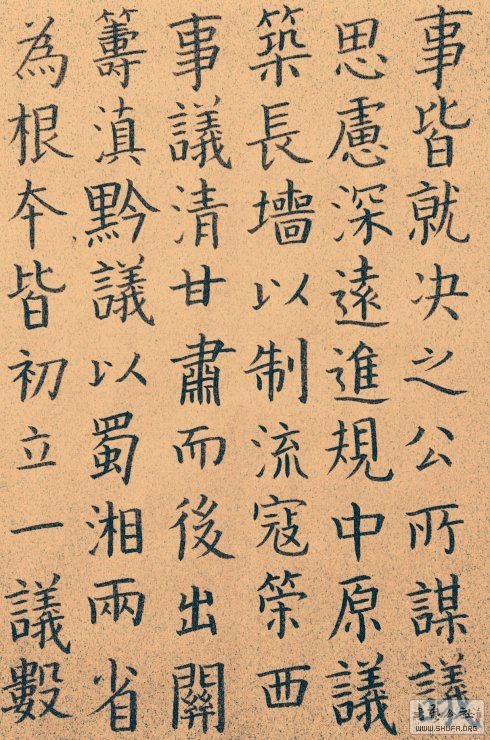 事皆就决之公所謀議
思慮深遠進規中原議
築長墻以制流寇䇿西
事議清甘肅而後出關
籌滇黔議以蜀湘兩省
為根夲皆初立一議數
WWW.SHUFA.ORG